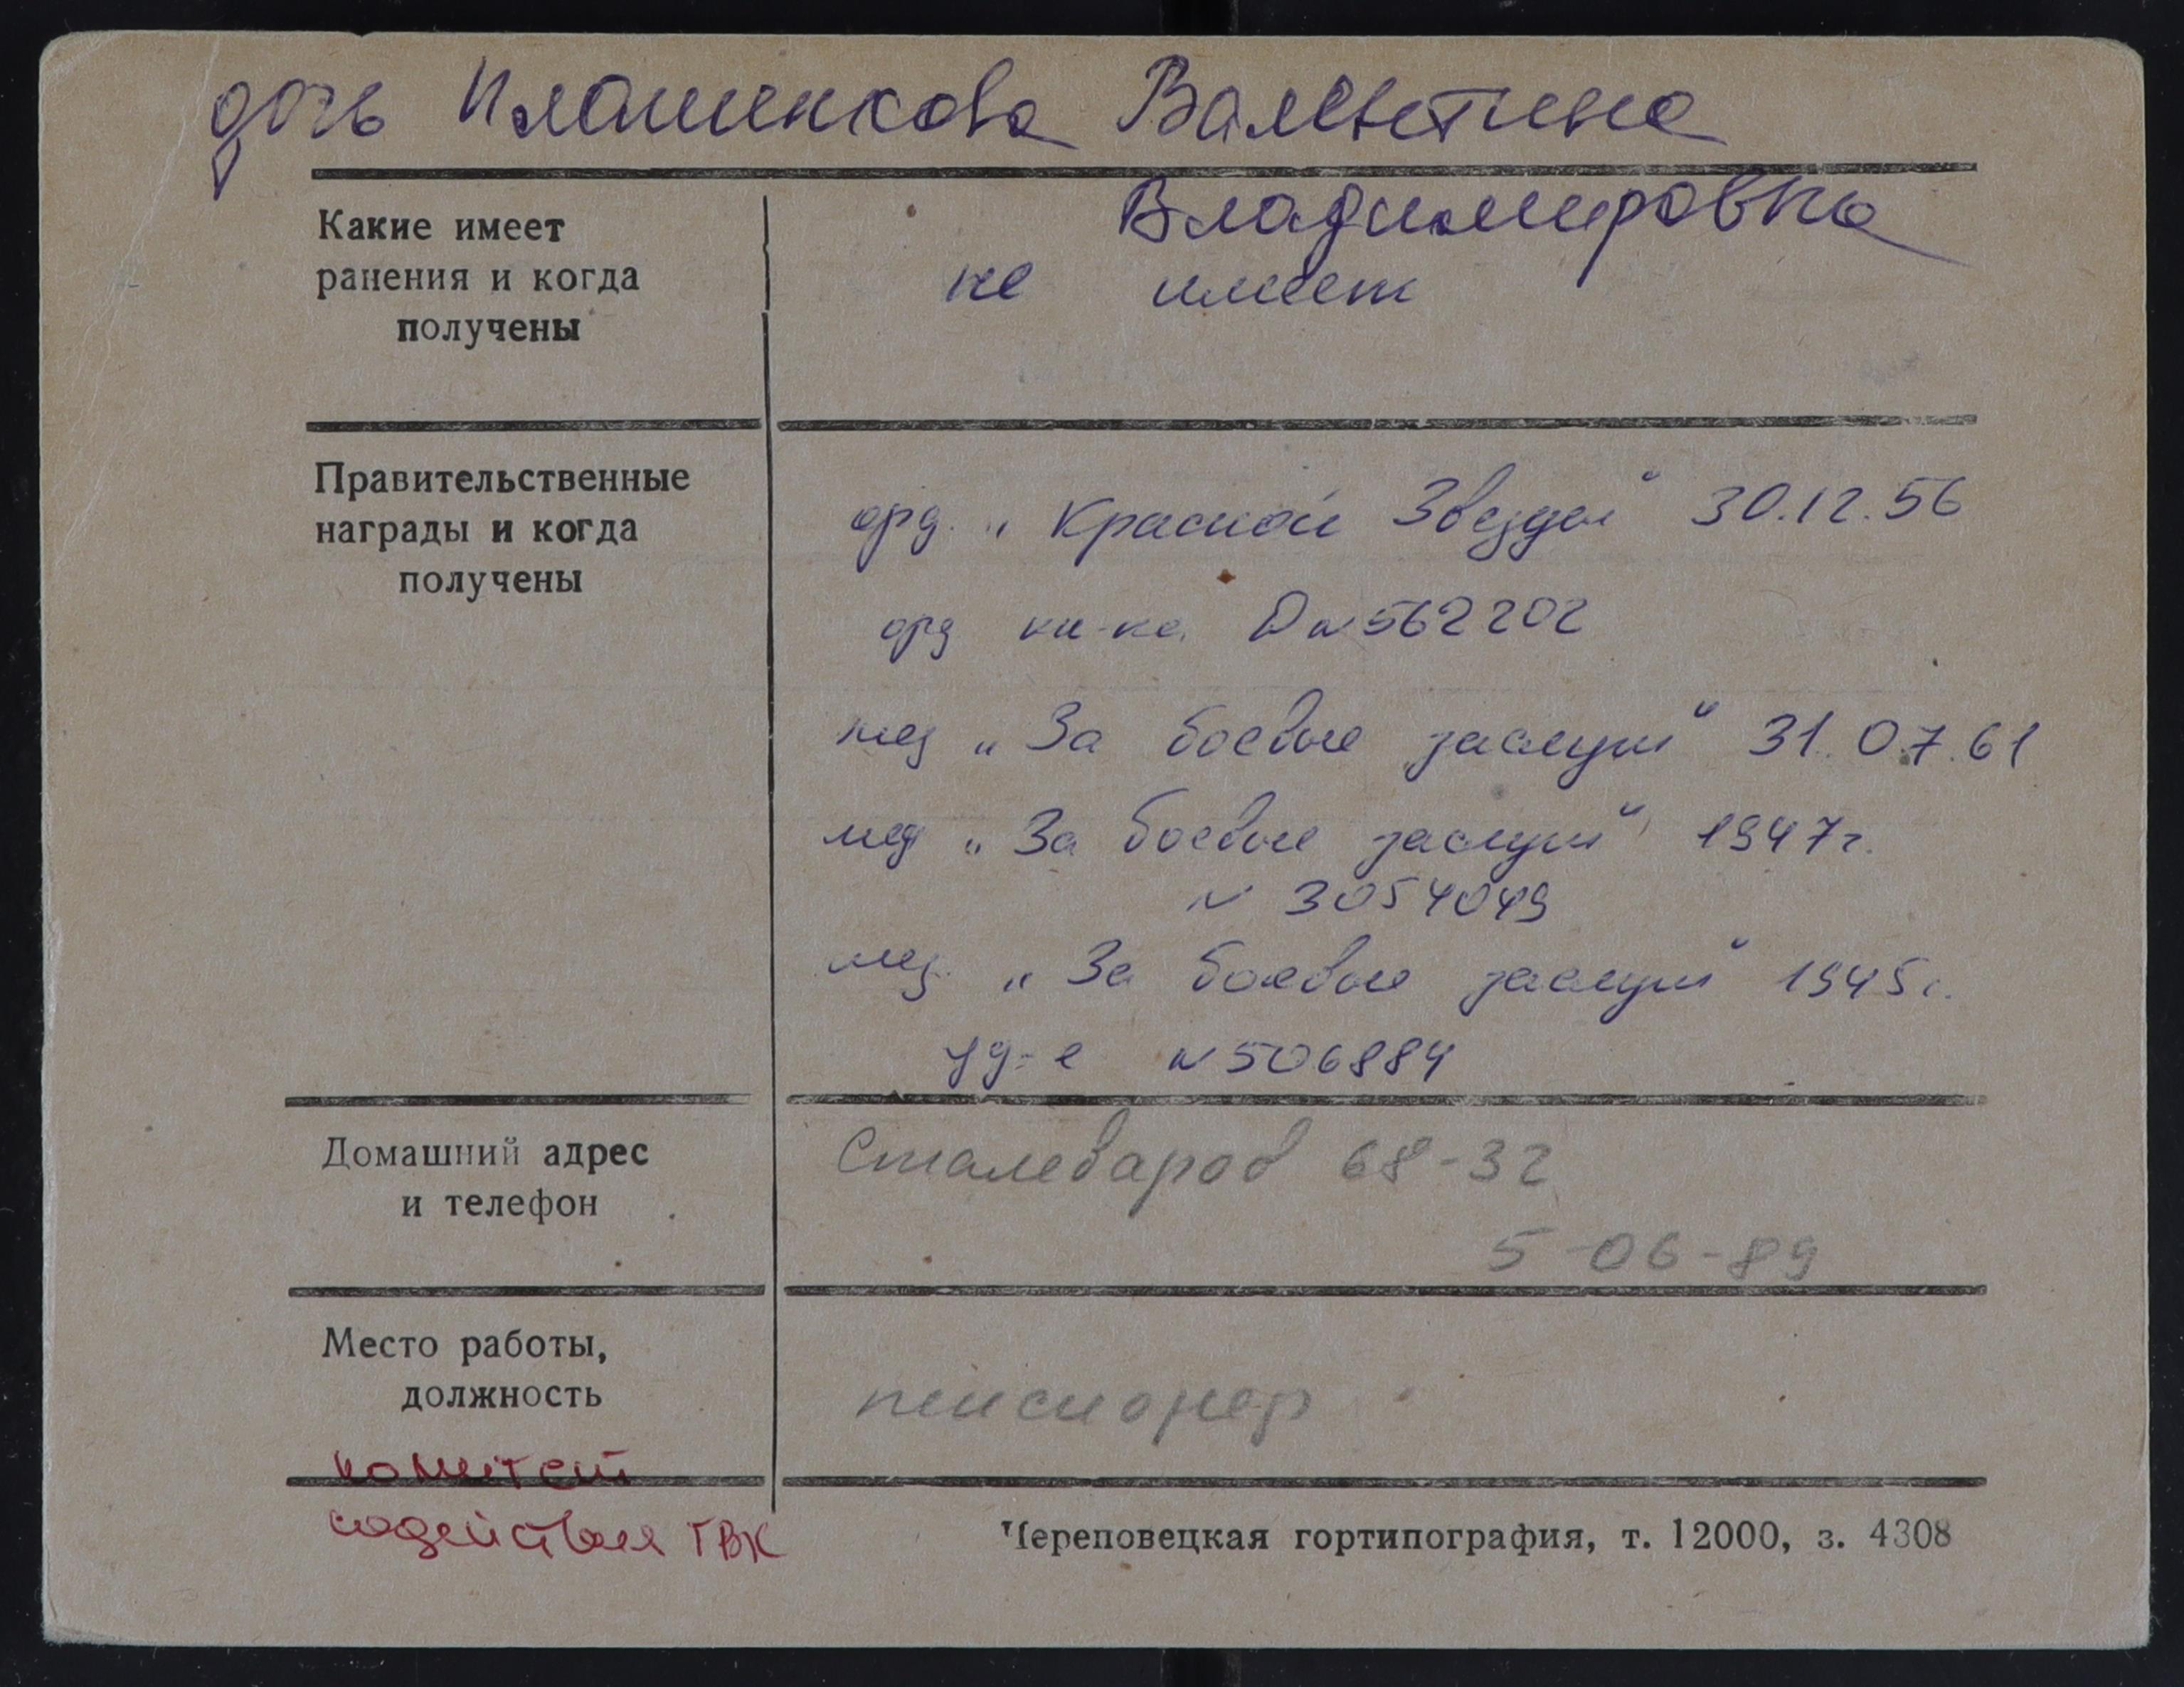 дочь Илошенкова Валентина
Владимировна
Какие имеет
ранения и когда
получены
не имеет
Правительственные
награды и когда
получены
орд. „Красной Звезды" 30.12.56
орд кн-ка D N 562202
мед „За боевые заслуги" 31.07.61
мед „За боевые заслуги" 1947г.
N 3054049
мед. „За боевые заслуги" 1945г.
уд-е N 506884
Домашний адрес
и телефон
Сталеваров 68-32
5-06-89
Место работы,
должность
пенсионер
комитет
содействия ГВК
Череповецкая гортипография, т. 12000, з. 4308